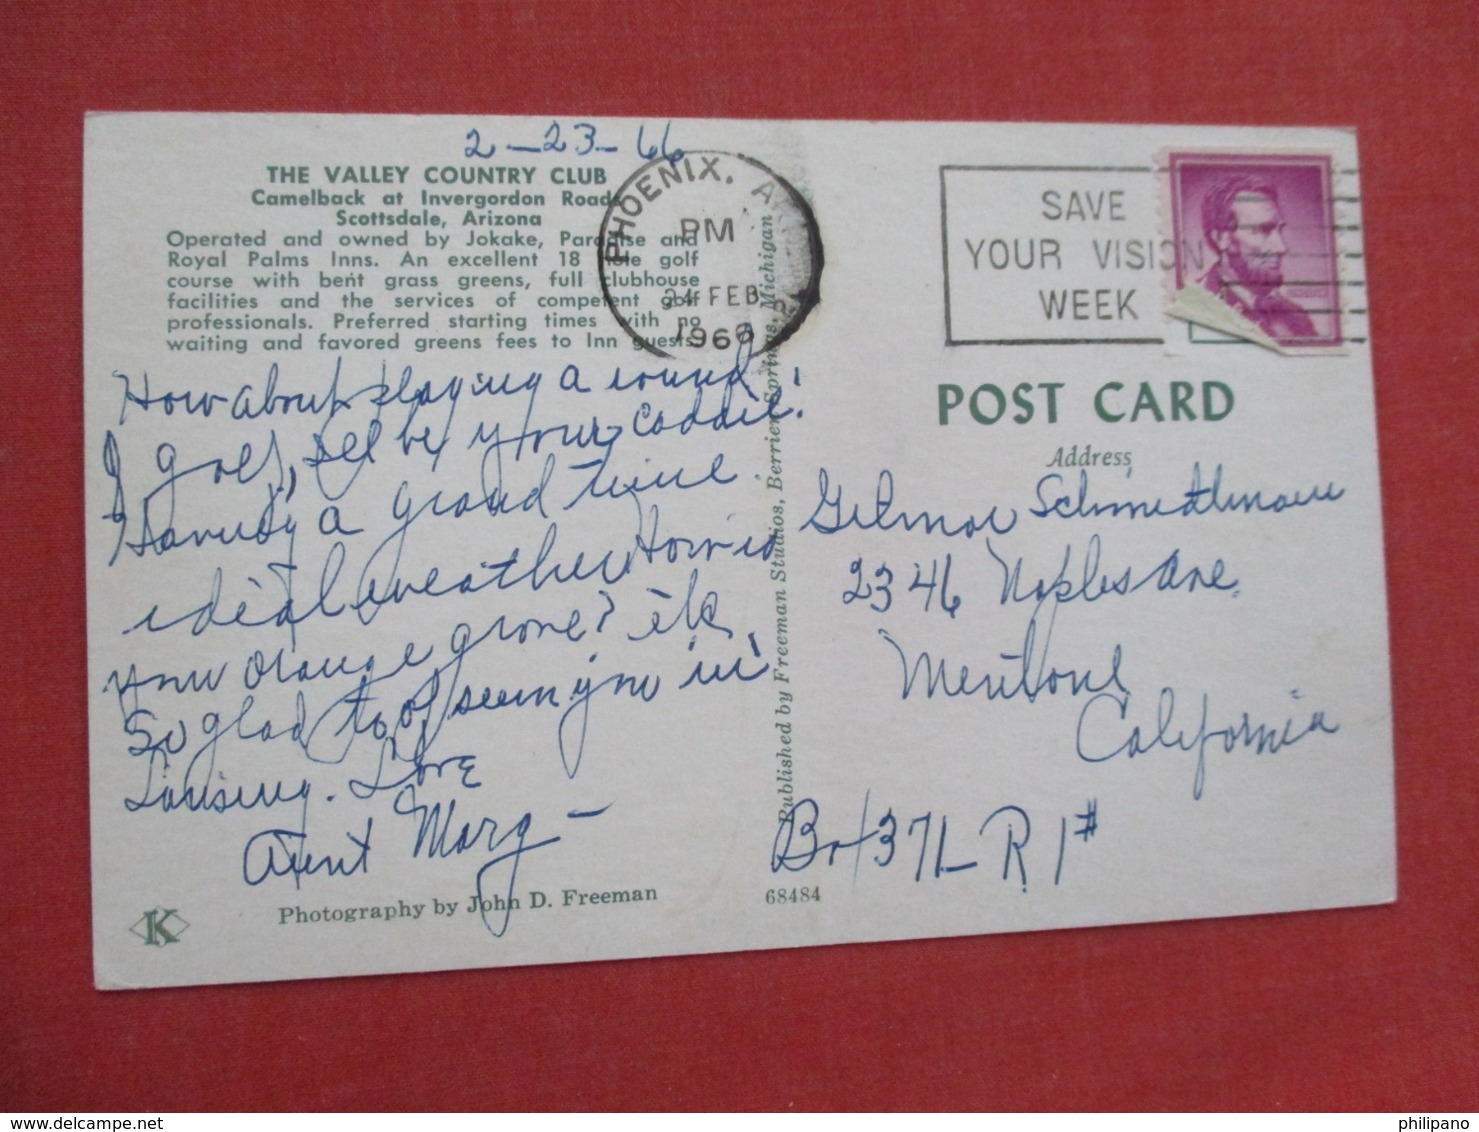 2-23-66
THE VALLEY COUNTRY CLUB
Camelback at Invergordon Road
Scottsdale, Arizona
Operated and owned by Jokake, Paradise and
Royal Palms Inns. An excellent 18 hole golf
course with bent grass greens, full clubhouse
facilities and the services of competent golf
professionals. Preferred starting times with no
waiting and favored greens fees to Inn guests.
How about playing a round
golf, I'll be your caddie.
Having a grand time
ideal weather How is
your orange grove? etc.
So glad to of seen you in
Lansing. Love
Aunt Marg -
Photography by John D. Freeman
K
68484
Published by Freeman Studios, Berrien Springs, Michigan
PHOENIX, A
PM
24 FEB
1966
SAVE
YOUR VISION
WEEK
POST CARD
Address
Gilmor Schmidtmann
2346 Naples Ave.
Mentone
California
Box 371- R 1#
philipano